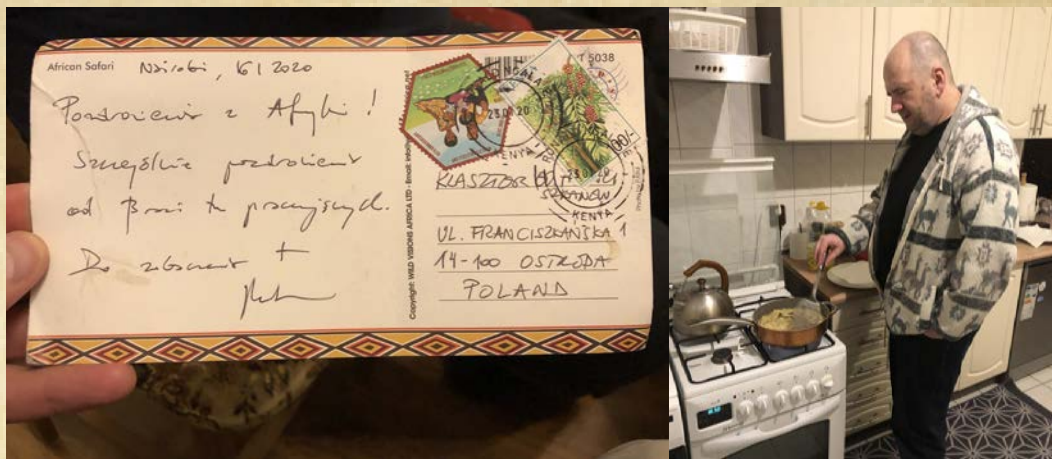 African Safari
Nairobi, 16 I 2020
Pozdrowienia z Afryki!
Szczególnie pozdrowienia
od Braci tu pracujących.
Do zobaczenia +
Copyright: WILD VISIONS AFRICA LTD - Email:
T 5038
23.01.20
KENYA
00/-
KENYA
KLASZTOR
UL. FRANCISZKAŃSKA 1
14-100 OSTRÓDA
POLAND